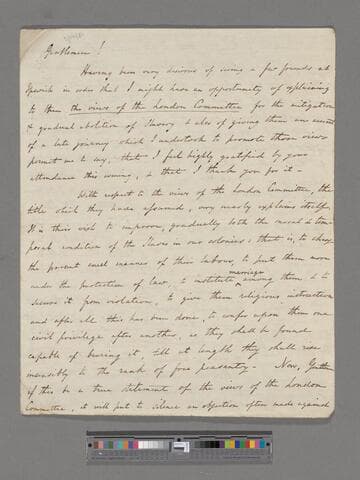 Gentlemen!
Having been very desirous of seeing a few friends at
Ipswich in order that I might have an opportunity of explaining
to them the views of the London Committee for the mitigation
& gradual abolition of Slavery & also of giving them an account
of a late journey which I undertook to promote those views
permit me to say, that I feel highly gratified by your
attendance this evening, & that I thank you for it -
With respect to the views of the London Committee, the
title which they have assumed, very nearly explains itself.
It is their wish to improve gradually both the moral & tem-
poral condition of the Slaves in our colonies; that is, to change
the present cruel manner of their labour, to put them more
under the protection of law, to institute marriages among them & to
secure it from violation, to give them religious instruction
and after all this has been done, to confer upon them one
civil privilege after another, as they shall be found
capable of bearing it, till at length they shall rise
insensibly to the rank of free peasantry - Now, Gentn
if this be a true statement of the views of the London
Committee, it will put to silence an objection often made against